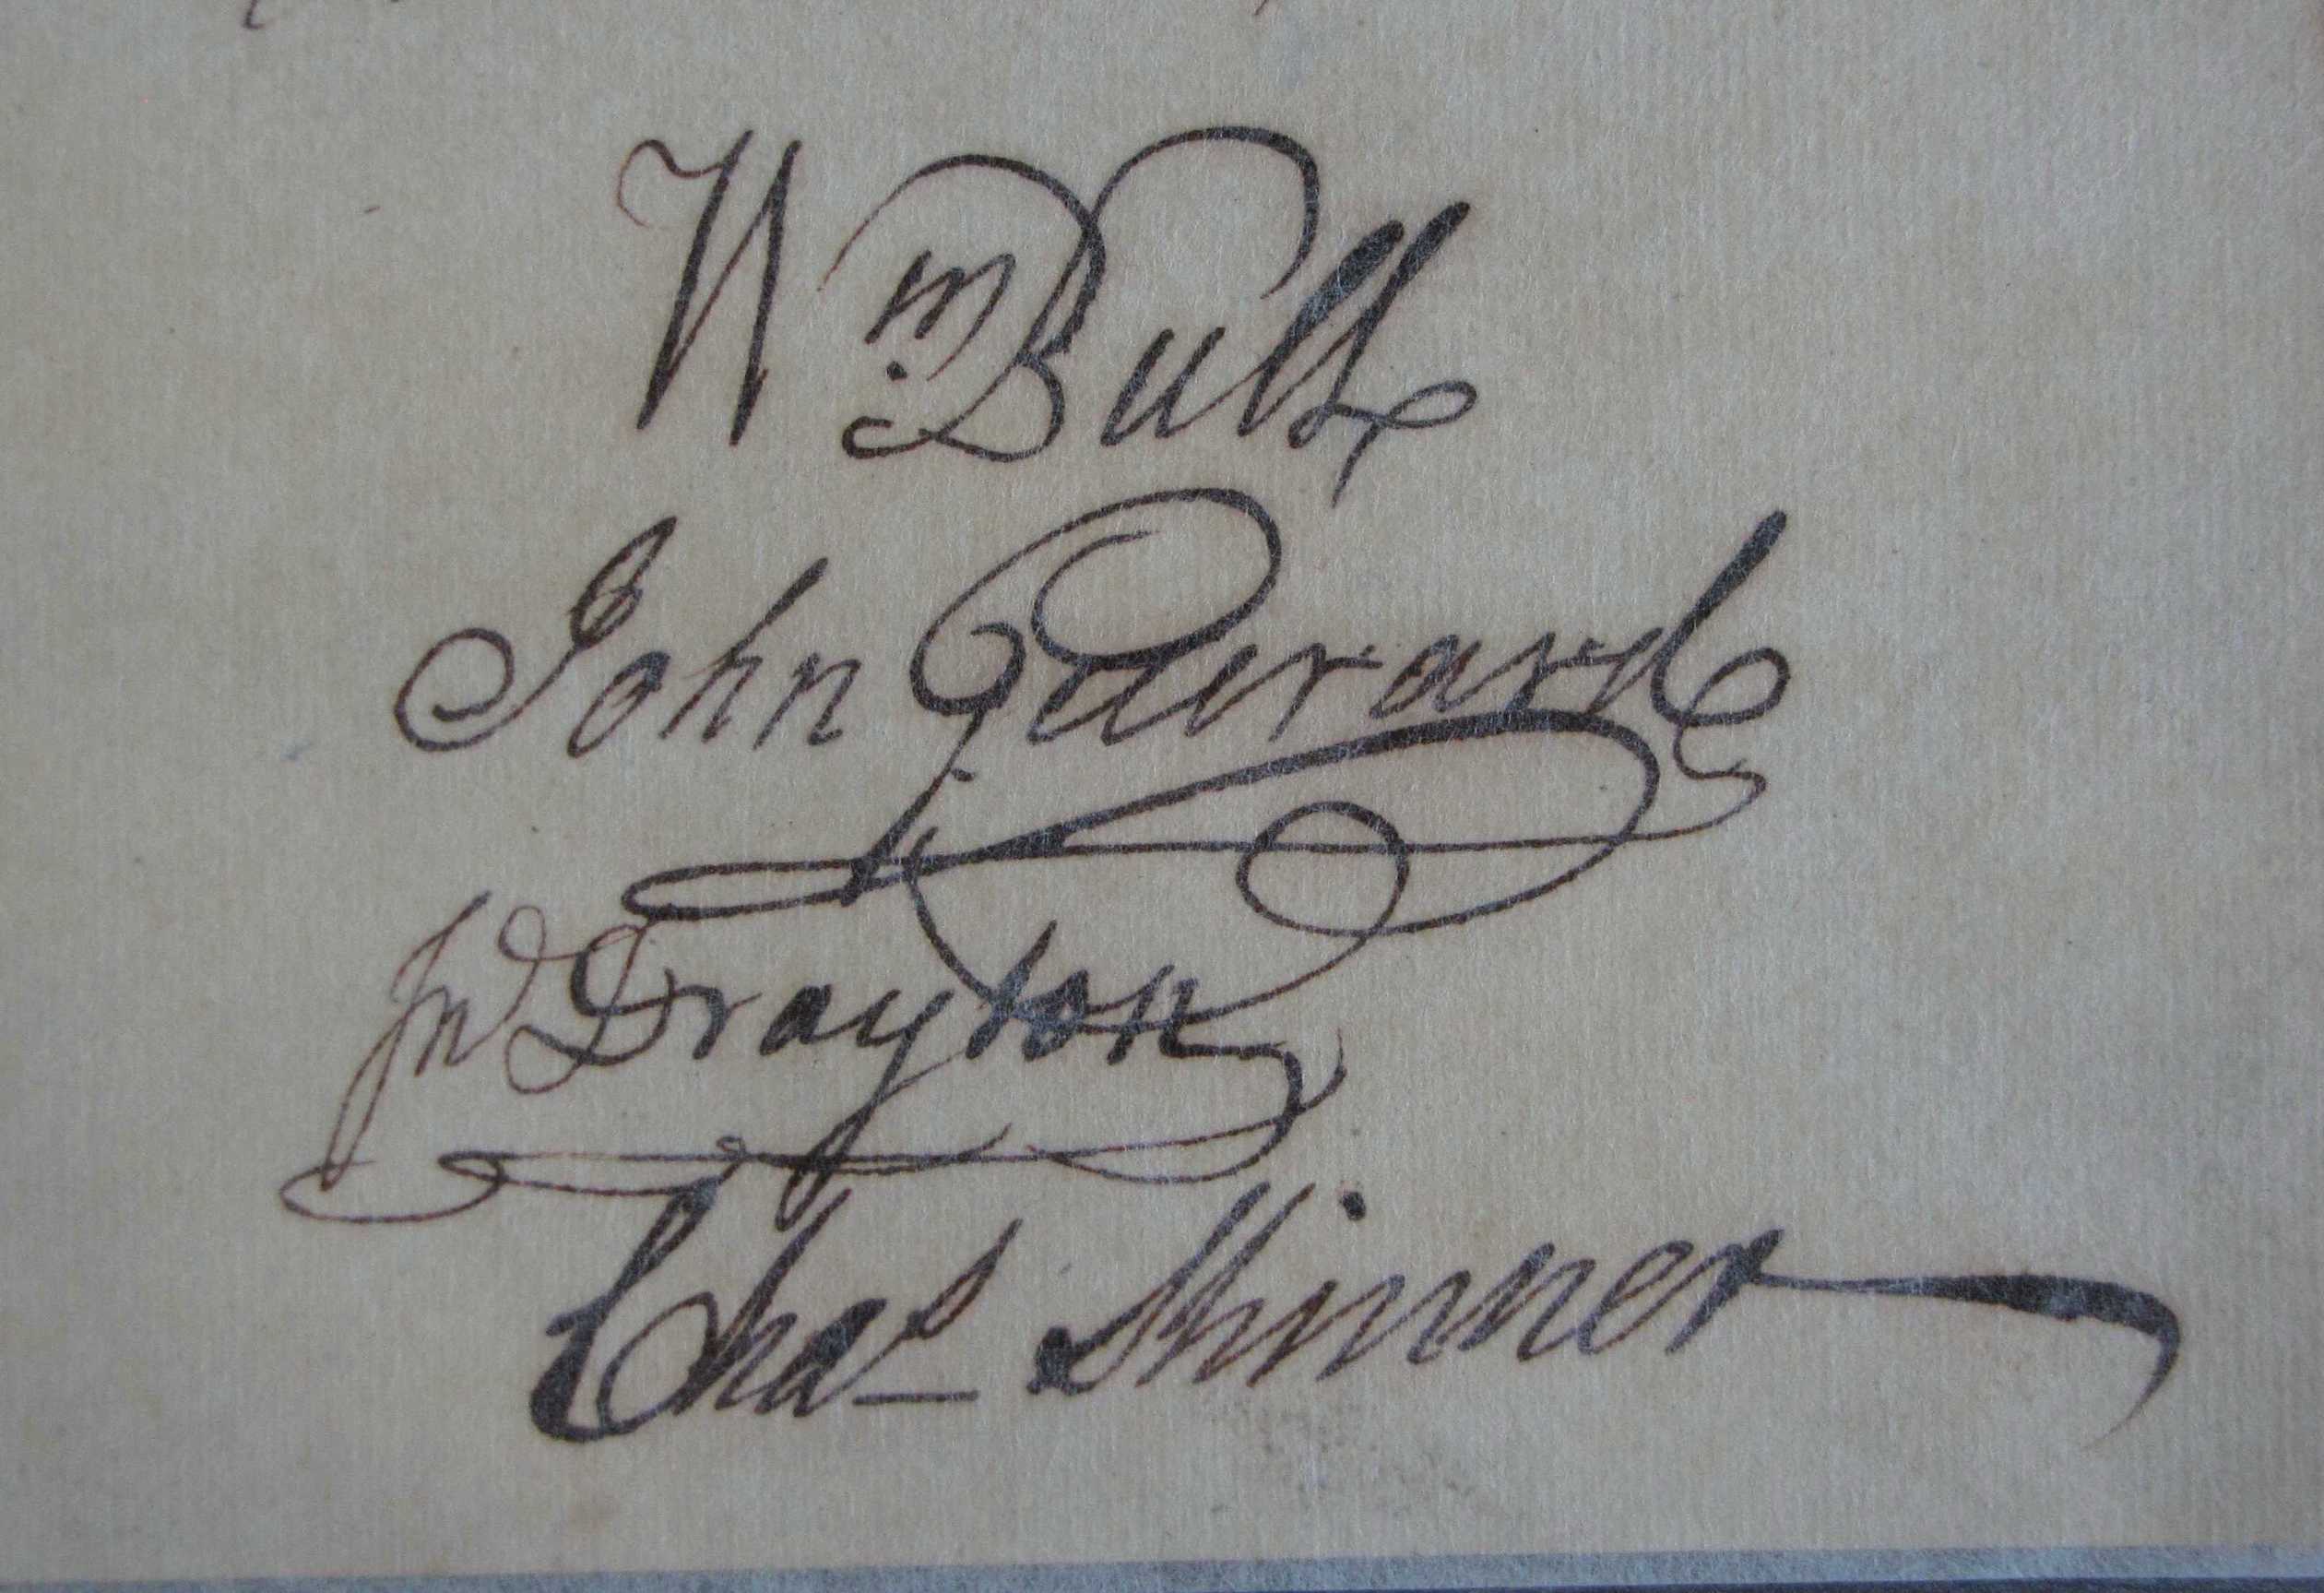 Wm Bull
John Guerard
Jno Drayton
Chas Skinner